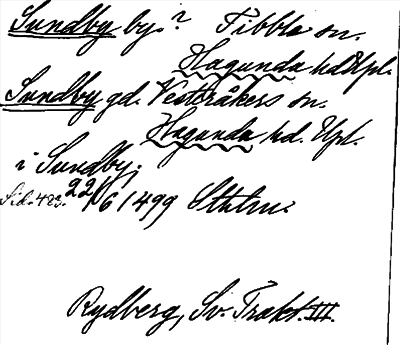 Sundby by.? Tibble sn.
Hagunda hd Upl.
Sundby gd. Vestråkers sn.
Hagunda hd. Upl.
i Sundby,
22/6 1499 Sthlm.
Rydberg, Sv. Trakt. III.